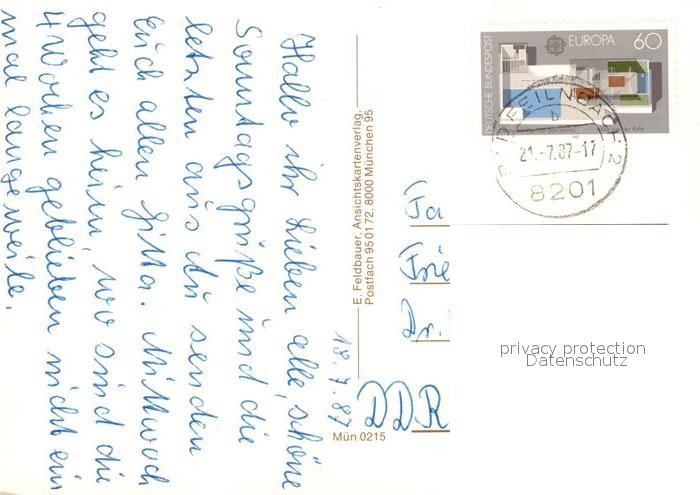 Hallo ihr Lieben alle, schöne
Sonntagsgrüße und die
letzten aus senden
Euch allen Gitta. Mittwoch
geht es heim, wo sind die
4 Wochen geblieben nicht ein
mal langeweile.
18.7.87
E. Feldbauer, Ansichtskartenverlag,
Postfach 95 01 72, 8000 München 95
Mün 0215
DEUTSCHE BUNDESPOST
EUROPA 60
21.-7.87-17
8201
Fa
Dr.
DDR
privacy protection
Datenschutz